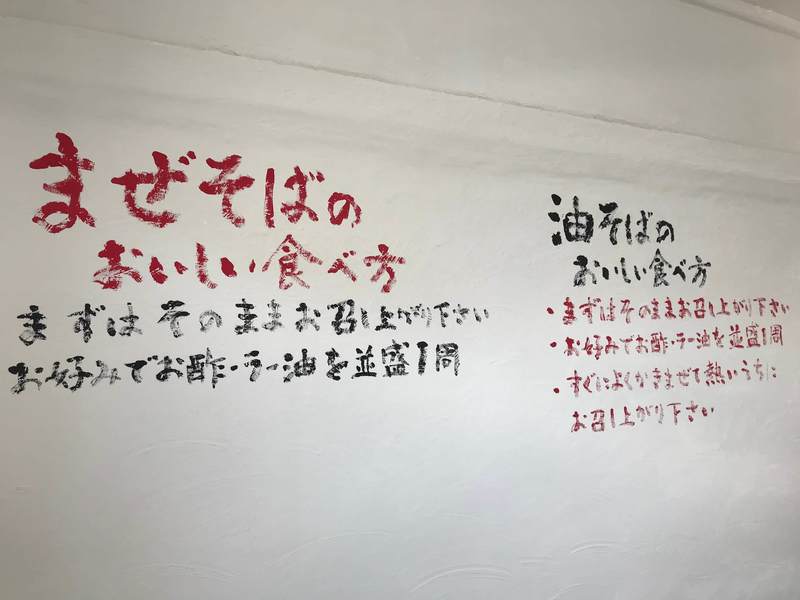 まぜそばの
おいしい食べ方
まずはそのままお召し上がり下さい
お好みでお酢・ラー油を並盛1周
油そばの
おいしい食べ方
・まずはそのままお召し上がり下さい
・お好みでお酢・ラー油を並盛1周
・すぐによくかきまぜて熱いうちに
お召し上がり下さい